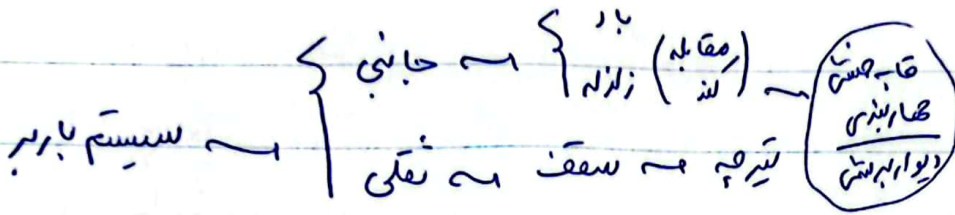 سیستم باربر ← { جانبی ← { باد
زلزله (مقابله کند) ← قاب خمشی
مهاربندی
دیوار برشی
ثقلی ← سقف ← تیرچه